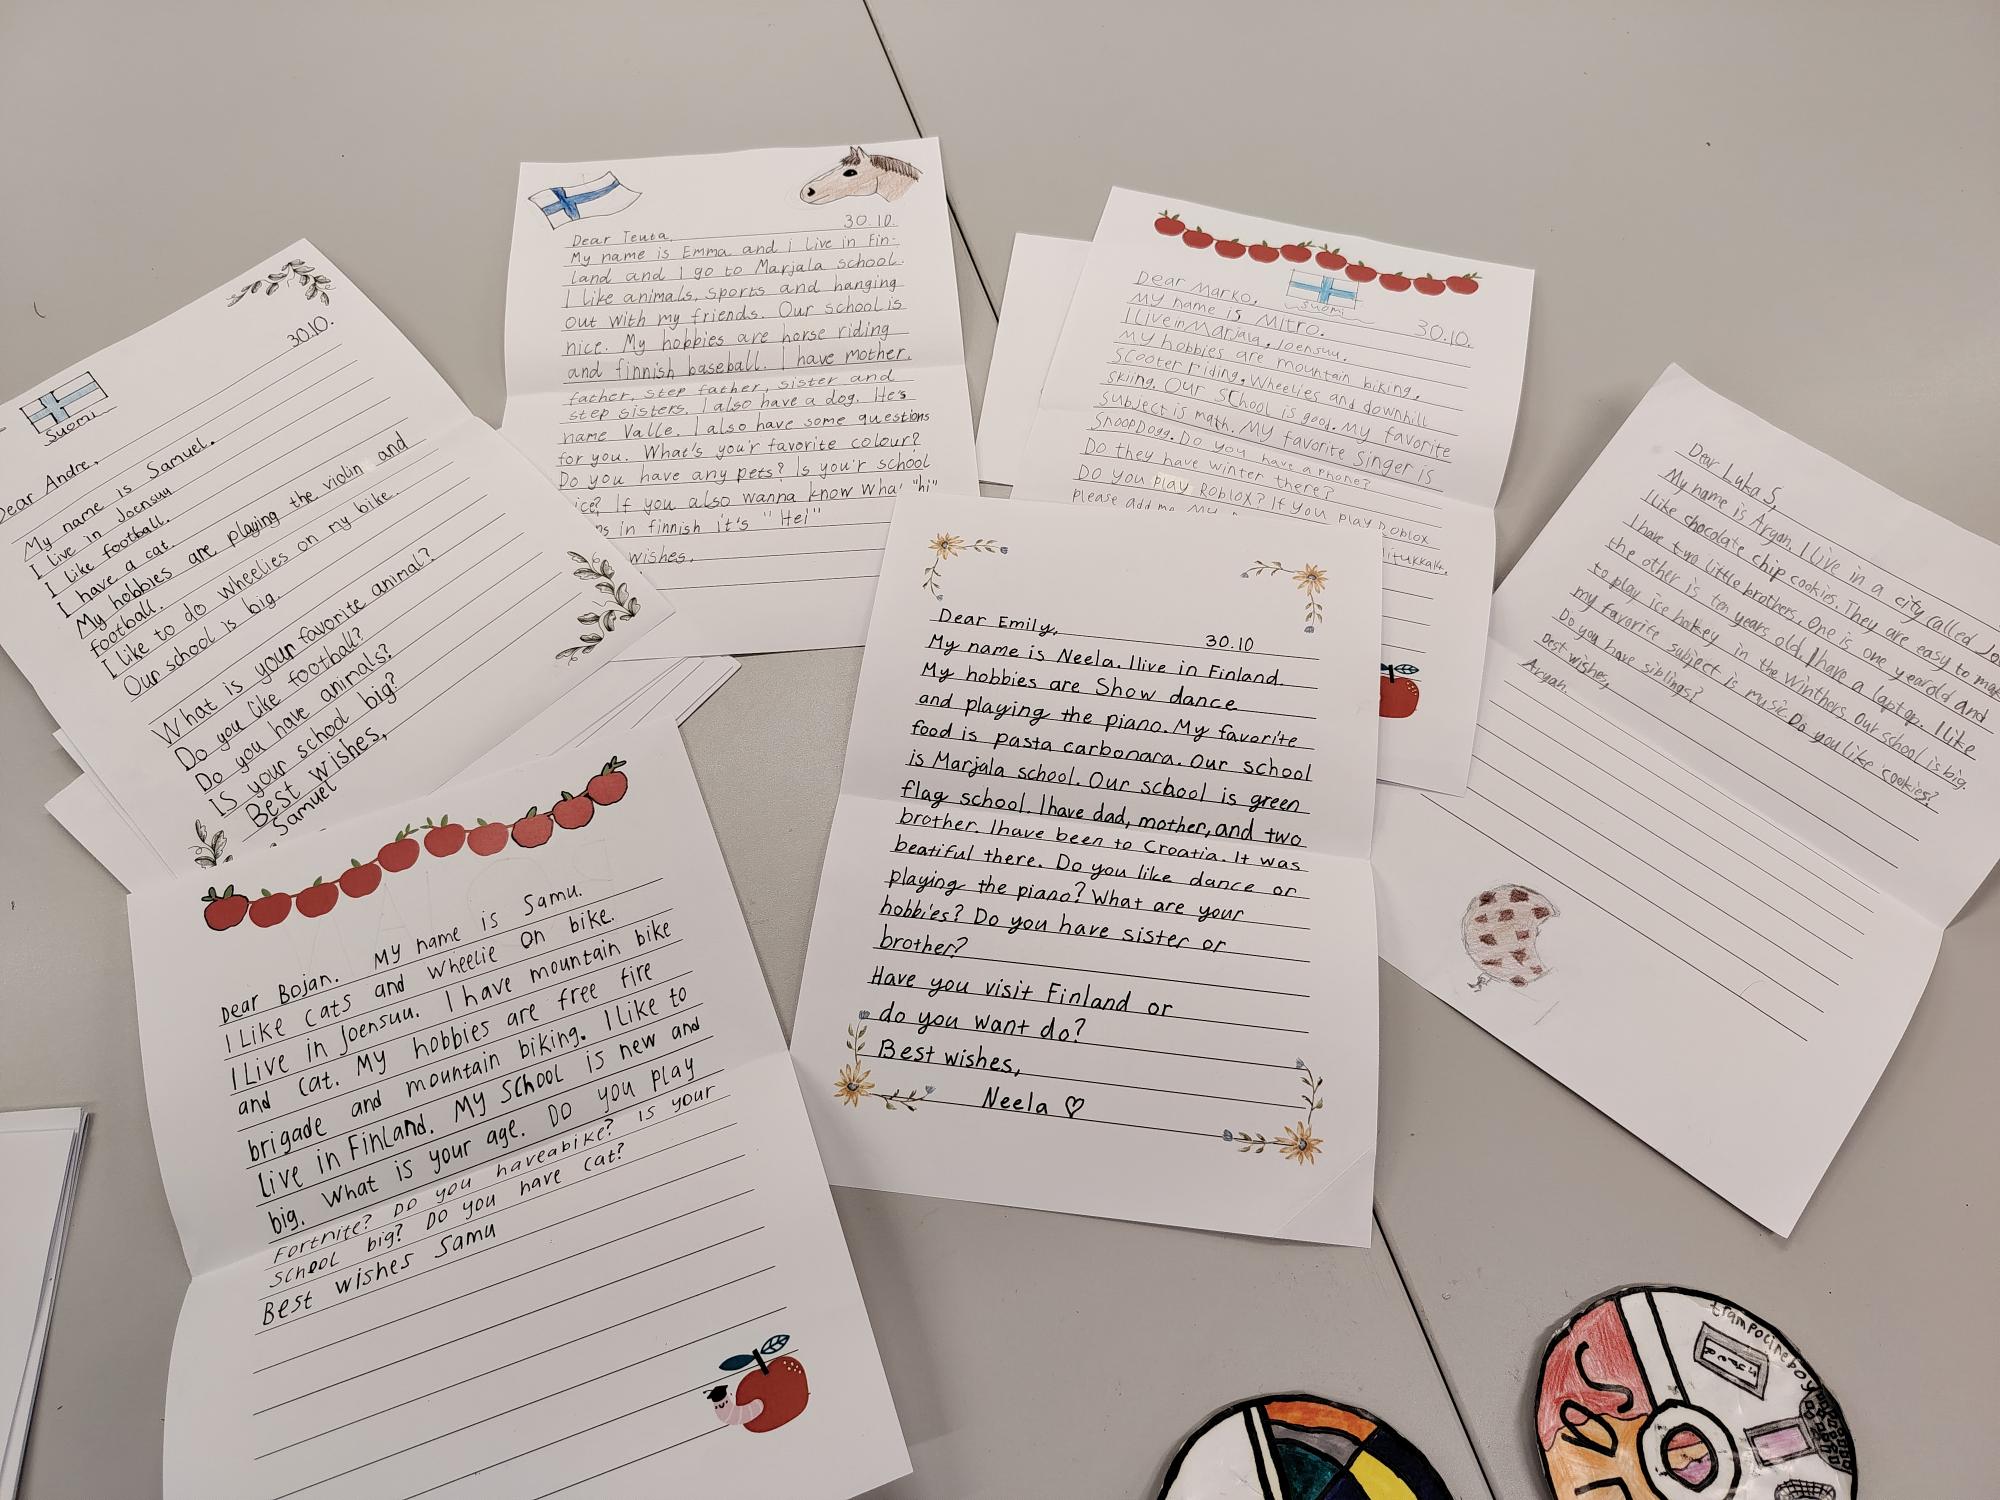 30.10.
Suomi
Dear Andre,
My name is Samuel.
I live in Joensuu
I like football.
I have a cat.
My hobbies are playing the violin and
football.
I like to do wheelies on my bike.
Our school is big.
What is your favorite animal?
Do you like football?
Do you have animals?
Is your school big?
Best wishes,
Samuel
30.10.
Dear Teuta.
My name is Emma and i live in Fin-
land and I go to Marjala school.
I like animals, sports and hanging
out with my friends. Our school is
nice. My hobbies are horse riding
and finnish baseball. I have mother,
father, step father, sister and
step sisters. I also have a dog. He's
name Valle. I also have some questions
for you. What's you'r favorite colour?
Do you have any pets? Is you'r school
ice? If you also wanna know wha' "hi"
ns in finnish it's "Hei"
wishes.
Dear Marko,
Suomi
30.10.
My name is Mitro.
I live in Marjala, Joensuu.
My hobbies are mountain biking,
Scooter riding, Wheelies and downhill
skiing. Our school is good. My favorite
subject is math. My favorite singer is
SnoopDogg. Do you have a phone?
Do they have winter there?
Do you play Roblox? If you play Roblox
please add me. My
itukkalk.
Dear Luka S,
My name is Aryan. I live in a city called Joe
I like chocolate chip cookies. They are easy to mak
I have two little brothers. One is one year old and
the other is ten years old. I have a laptop. I like
to play ice hokey in the winthers. Our school is big.
my favorite subject is music. Do you like cookies?
Do you have siblings?
Best wishes,
Aryan.
Dear Bojan. My name is Samu.
I Like cats and wheelie on bike.
I Live in Joensuu. I have mountain bike
and cat. My hobbies are free fire
brigade and mountain biking. I Like to
Live in Finland. My School is new and
big. What is your age. Do you play
Fortnite? Do you have a bike? is your
school big? Do you have cat?
Best wishes Samu
Dear Emily, 30.10
My name is Neela. I live in Finland.
My hobbies are Show dance
and playing the piano. My favorite
food is pasta carbonara. Our school
is Marjala school. Our school is green
flag school. I have dad, mother, and two
brother. I have been to Croatia. It was
beatiful there. Do you like dance or
playing the piano? What are your
hobbies? Do you have sister or
brother?
Have you visit Finland or
do you want do?
Best wishes,
Neela ♡